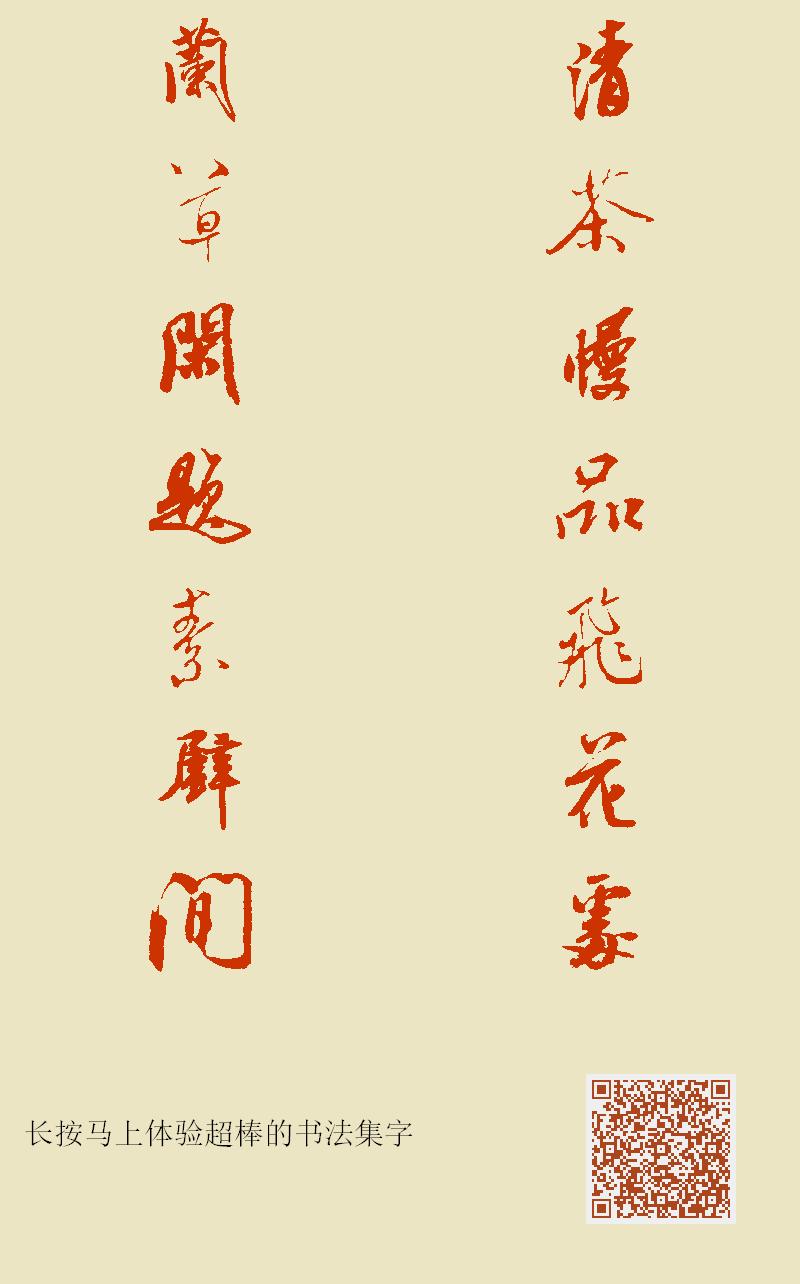 清茶慢品飛花處
蘭草閑題素壁間
长按马上体验超棒的书法集字